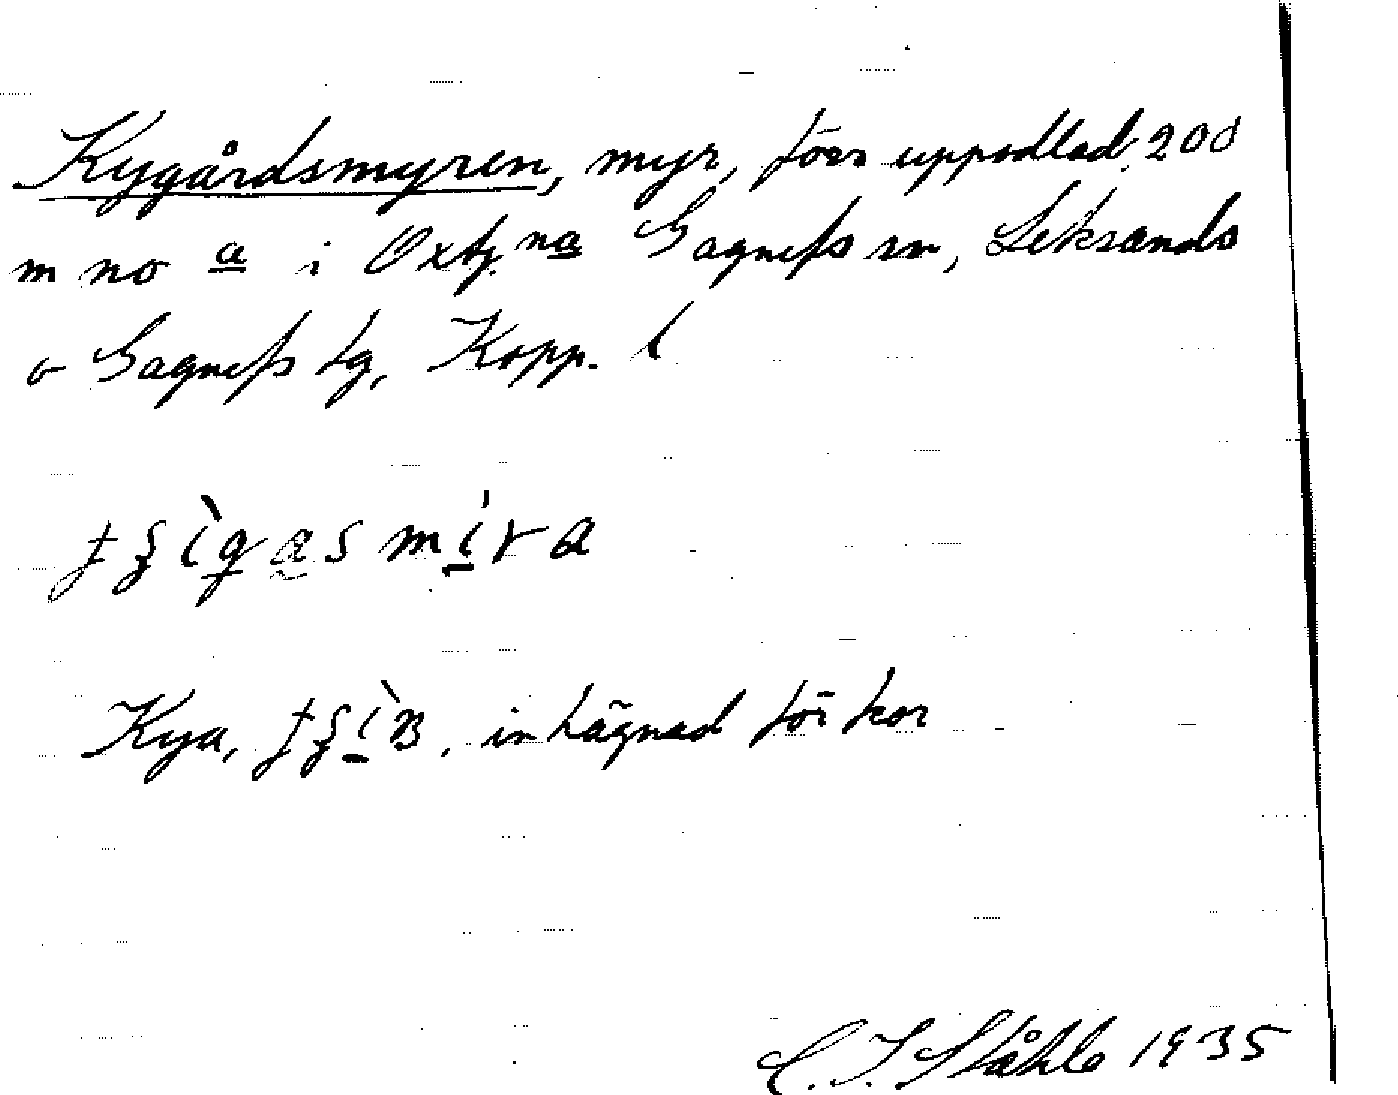 Kygårdsmyren, myr, förr uppodlad, 200
m no a i Oxbg.na Gagnefs sn, Leksands
o Gagnefs tg, Kopp. l
Kya, inhägnad för kor
C. I. Ståhle 1935